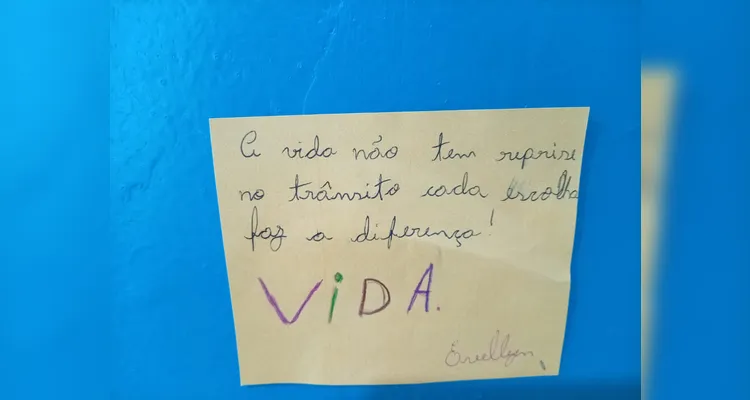 A vida não tem reprise
no trânsito cada escolha
faz a diferença!
ViDA.